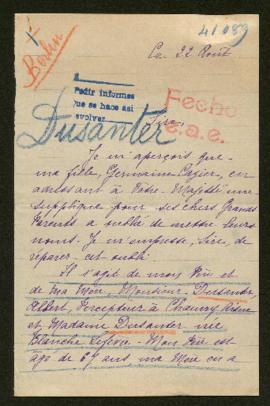 41089
1
Berlin
Ce 22 Août
Pedir informes
que se hace así
volver
Fecho
e.a.e.
Sire,
Dusanter
Je m'aperçois que
ma fille, Germaine, en
adressant à Votre Majesté une
supplique pour ses chers Grands
Parents a oublié de mettre leurs
noms. Je m'empresse, Sire, de
réparer cet oubli.
Il s'agit de mon Père et
de ma Mère, Monsieur Dusanter,
Albert, Percepteur à Chauny Aisne
et Madame Dusanter née
Blanche Lefèvre. Mon Père est
âgé de 67 ans ma Mère en a